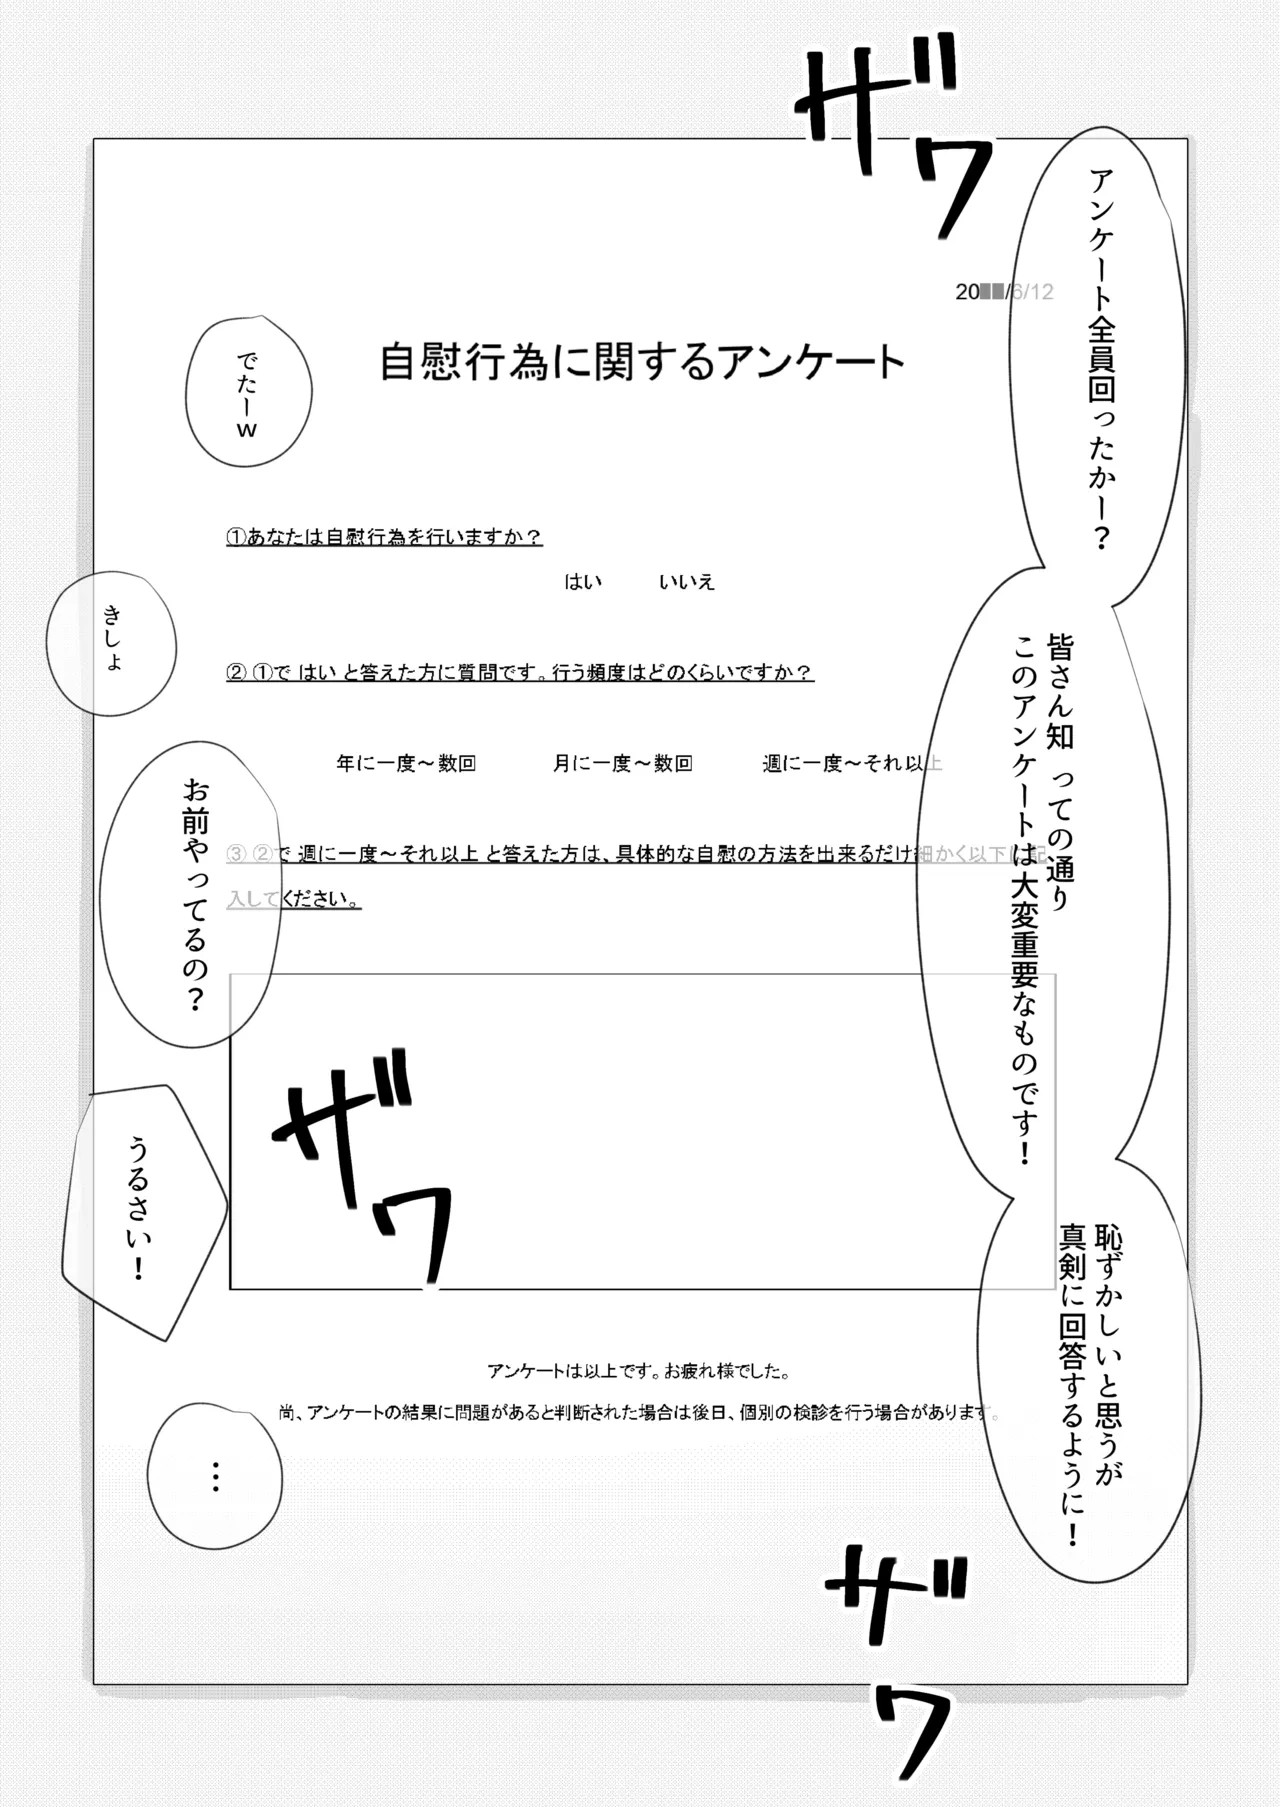 ザワ
アンケート全員回ったかー？
皆さん知っての通り
このアンケートは大変重要なものです！
恥ずかしいと思うが
真剣に回答するように！
20██/6/12
自慰行為に関するアンケート
でたーw
①あなたは自慰行為を行いますか？
はい いいえ
きしょ
② ①で はい と答えた方に質問です。行う頻度はどのくらいですか？
年に一度～数回 月に一度～数回 週に一度～それ以上
お前やってるの？
③ ②で 週に一度～それ以上 と答えた方は、具体的な自慰の方法を出来るだけ細かく以下に記
入してください。
ザワ
うるさい！
アンケートは以上です。お疲れ様でした。
尚、アンケートの結果に問題があると判断された場合は後日、個別の検診を行う場合があります。
…
ザワ